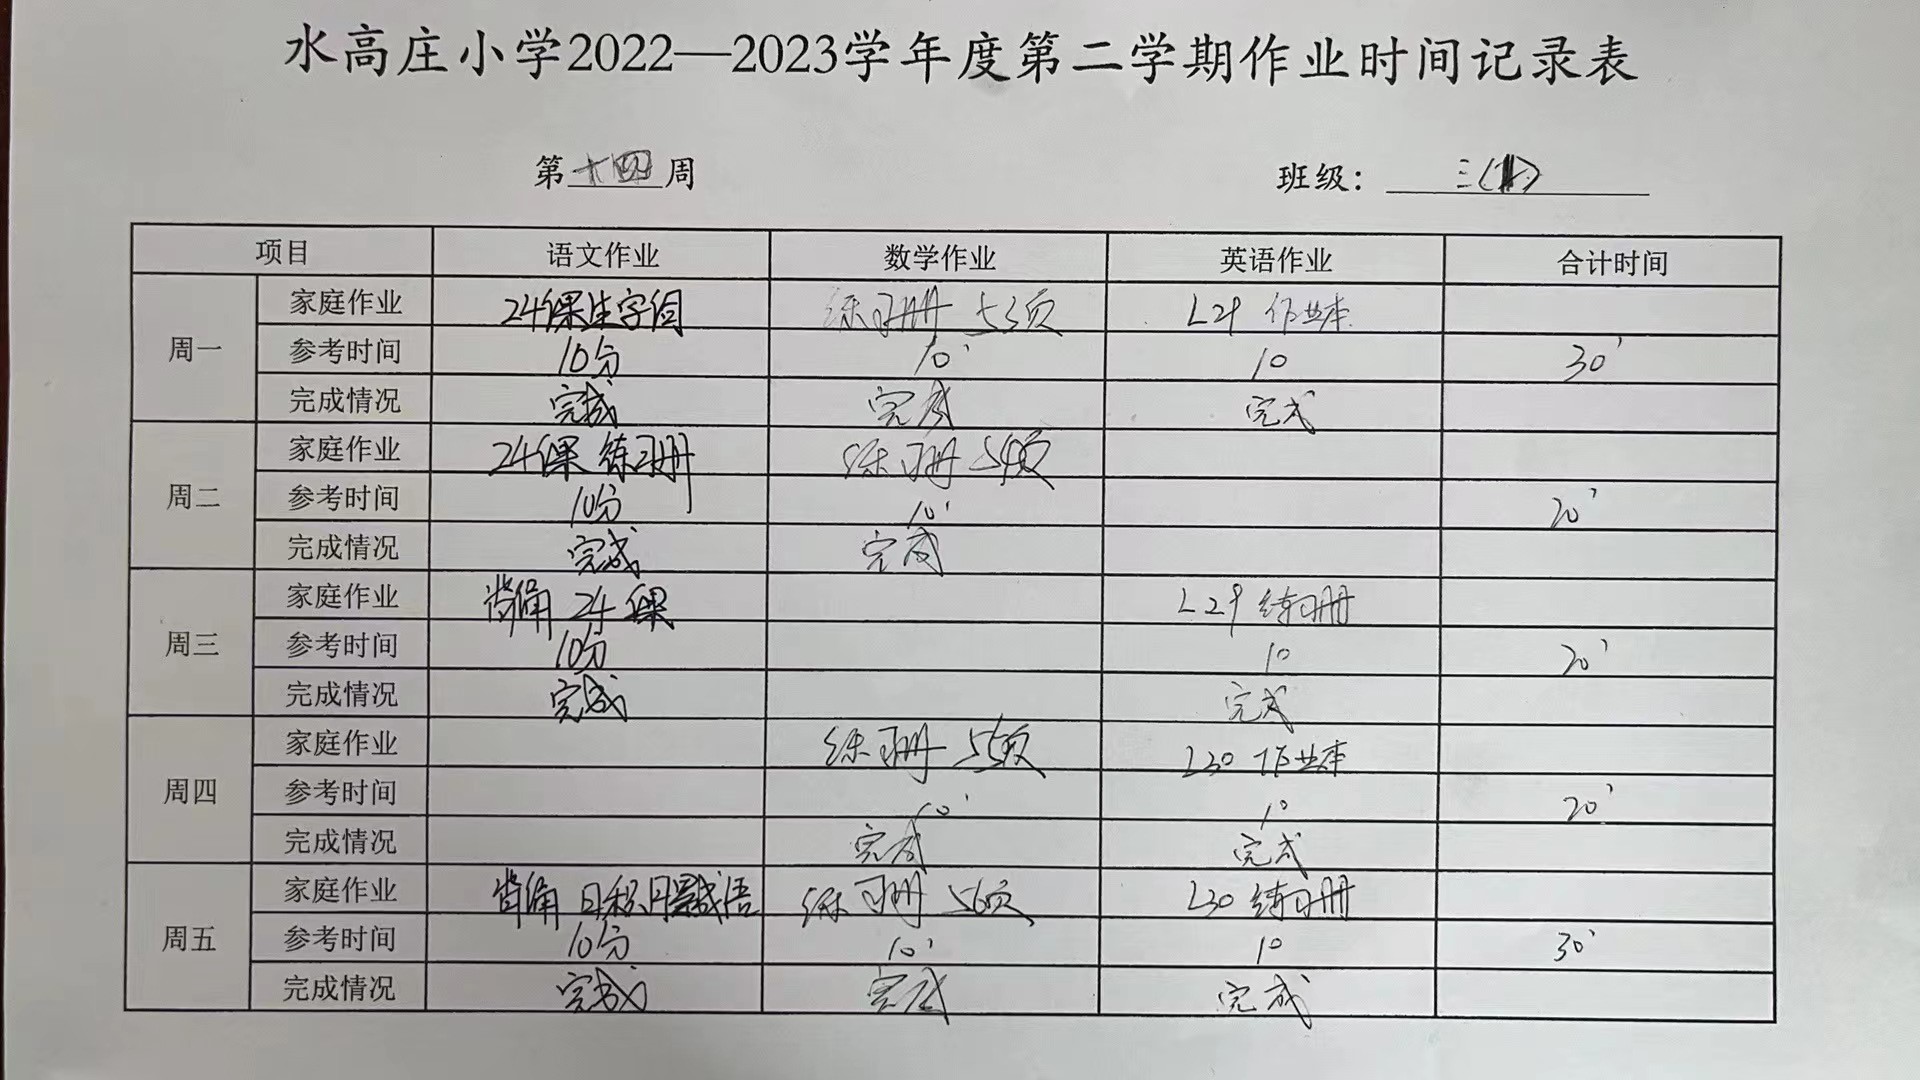 水高庄小学2022—2023学年度第二学期作业时间记录表
第十四周 班级：三
项目 语文作业 数学作业 英语作业 合计时间
周一 家庭作业 24课生字词 练习册 53页 L29 作业本
参考时间 10分 10' 10 30'
完成情况 完成 完成 完成
周二 家庭作业 24课 练习册 练习册 54页
参考时间 10分 10' 20'
完成情况 完成 完成
周三 家庭作业 背诵 24 课 L29 练习册
参考时间 10分 10 20'
完成情况 完成 完成
周四 家庭作业 练习册 55页 L30 作业本
参考时间 10' 10 20'
完成情况 完成 完成
周五 家庭作业 背诵 日积月累成语 练习册 56页 L30 练习册
参考时间 10分 10' 10 30'
完成情况 完成 完成 完成